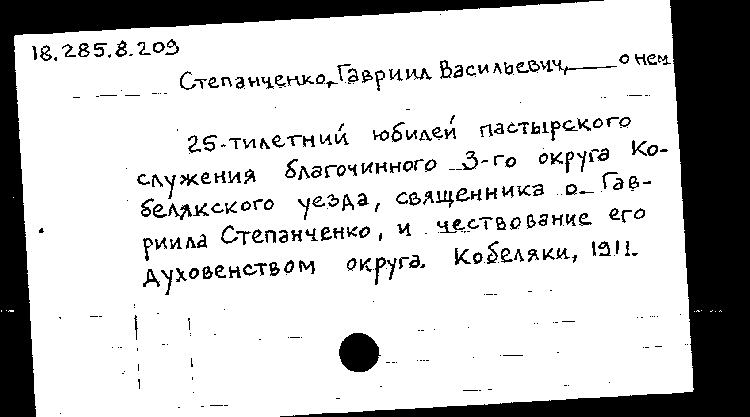 18.285.8.209
Степанченко, Гавриил Васильевич, о нем
25-тилетний юбилей пастырского
служения благочинного 3-го округа Ко-
белякского уезда, священника о. Гав-
риила Степанченко, и чествование его
духовенством округа. Кобеляки, 1911.